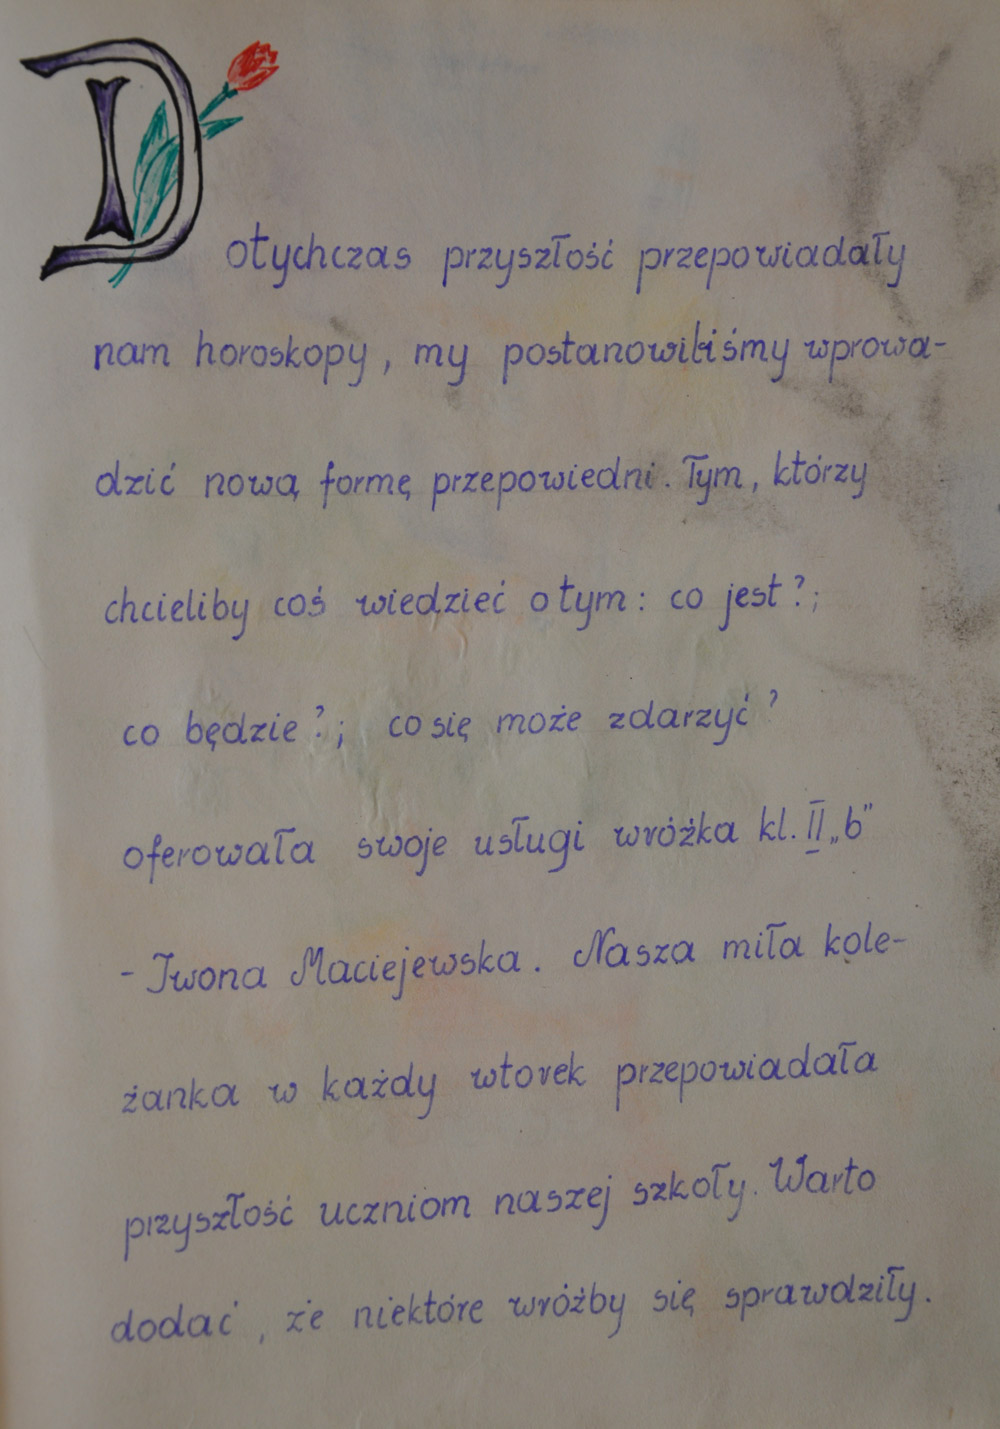 Dotychczas przyszłość przepowiadały
nam horoskopy, my postanowiliśmy wprowa-
dzić nową formę przepowiedni. Tym, którzy
chcieliby coś wiedzieć o tym: co jest?;
co będzie?; co się może zdarzyć?
oferowała swoje usługi wróżka kl. II „b"
- Iwona Maciejewska. Nasza miła kole-
żanka w każdy wtorek przepowiadała
przyszłość uczniom naszej szkoły. Warto
dodać, że niektóre wróżby się sprawdziły.